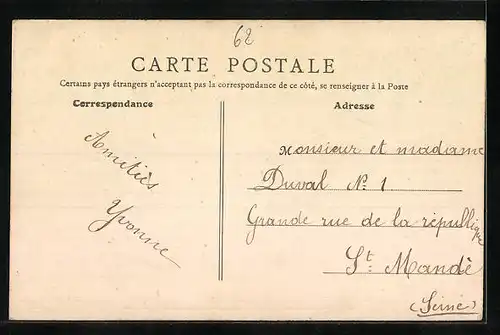 62
CARTE POSTALE
Certains pays étrangers n'acceptant pas la correspondance de ce côté, se renseigner à la Poste
Correspondance
Adresse
Amitiés
Yvonne
Monsieur et madame
Duval N° 1
Grande rue de la république
St. Mandé
(Seine)